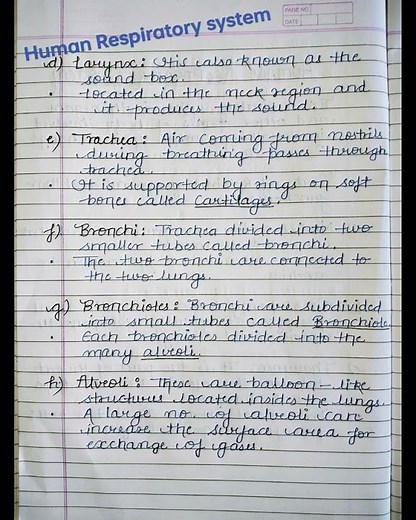 PAGE NO
DATE
Human Respiratory system
d) Larynx: It is also known as the
sound box.
• located in the neck region and
it produces the sound.
e) Trachea: Air coming from nostrils
during breathing passes through
trachea.
• It is supported by rings on soft
bones called cartilages.
f) Bronchi: Trachea divided into two
smaller tubes called bronchi.
• The two bronchi are connected to
the two lungs.
g) Bronchioles: Bronchi are subdivided
into small tubes called Bronchiole.
• Each bronchioles divided into the
many alveoli.
h) Alveoli: These are balloon-like
structures located insides the lungs.
• A large no. of alveoli can
increase the surface area for
exchange of gases.